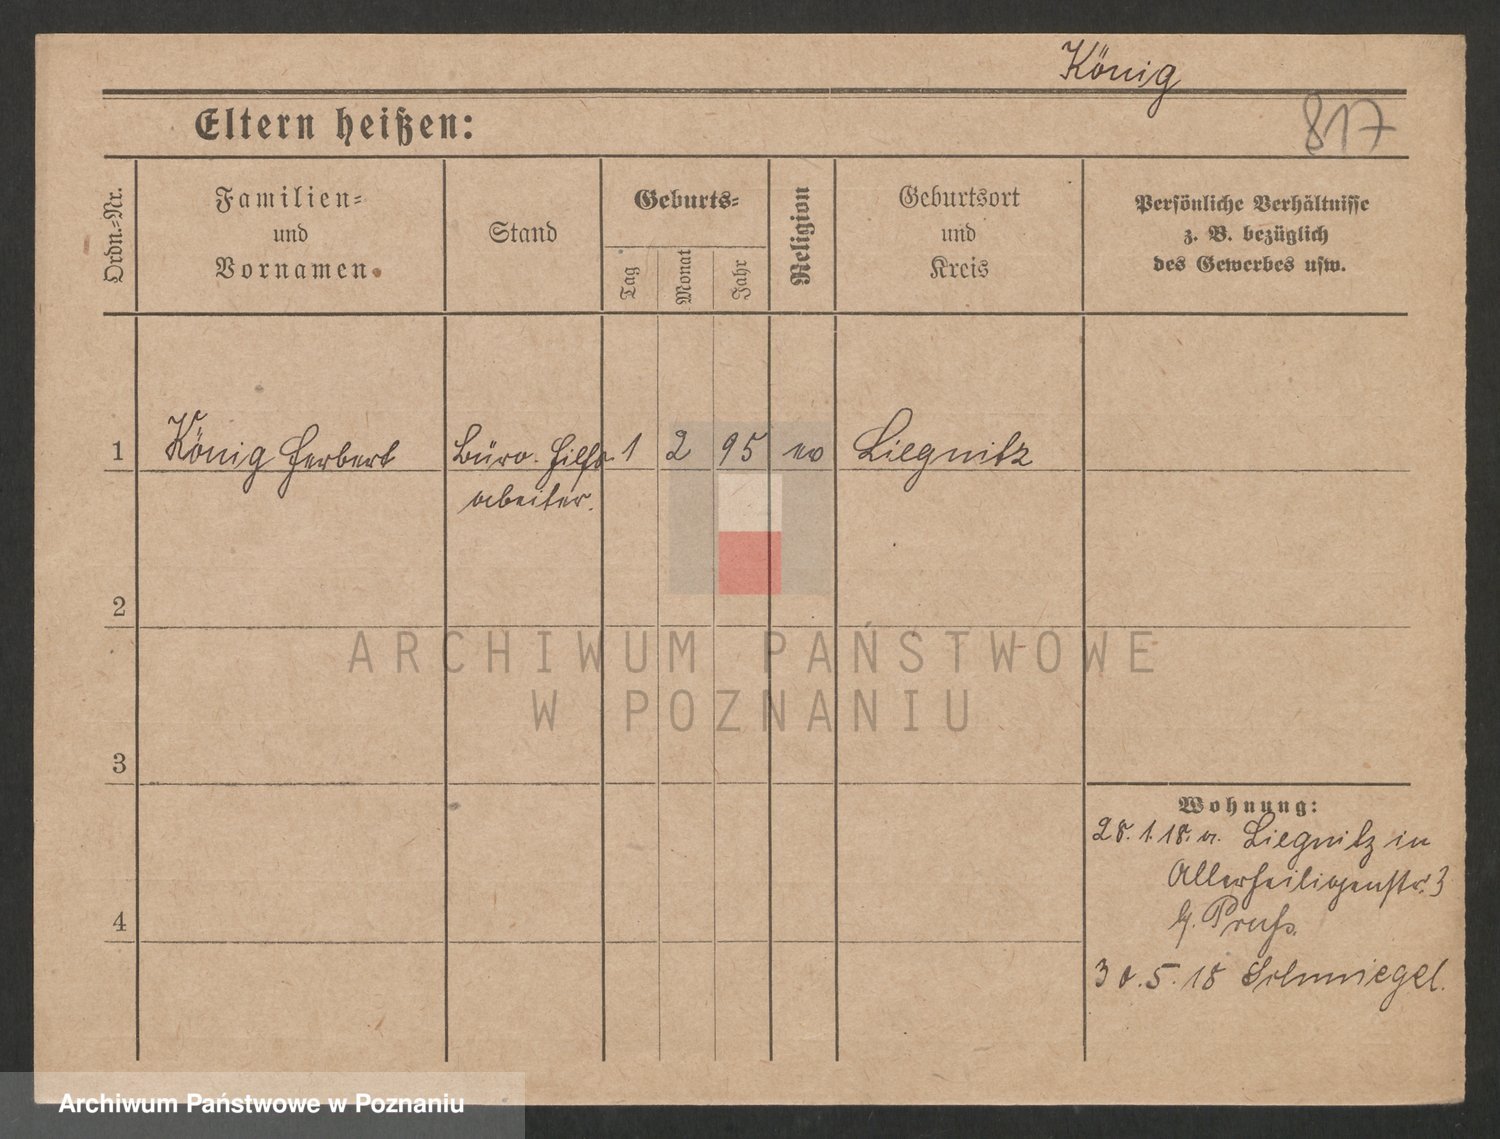 König
817
Eltern heißen:
Ordn.-Nr.
Familien-
und
Vornamen.
Stand
Geburts-
Tag
Monat
Jahr
Religion
Geburtsort
und
Kreis
Persönliche Verhältnisse
z. B. bezüglich
des Gewerbes usw.
1 König Herbert Büro-Hilfs 1 2 95 ev Liegnitz
arbeiter.
2
3
4
Wohnung:
28.1.18. a. Liegnitz in
Allerheiligenstr. 3
b.
30.5.18 Schmiegel.
ARCHIWUM PAŃSTWOWE
W POZNANIU
Archiwum Państwowe w Poznaniu